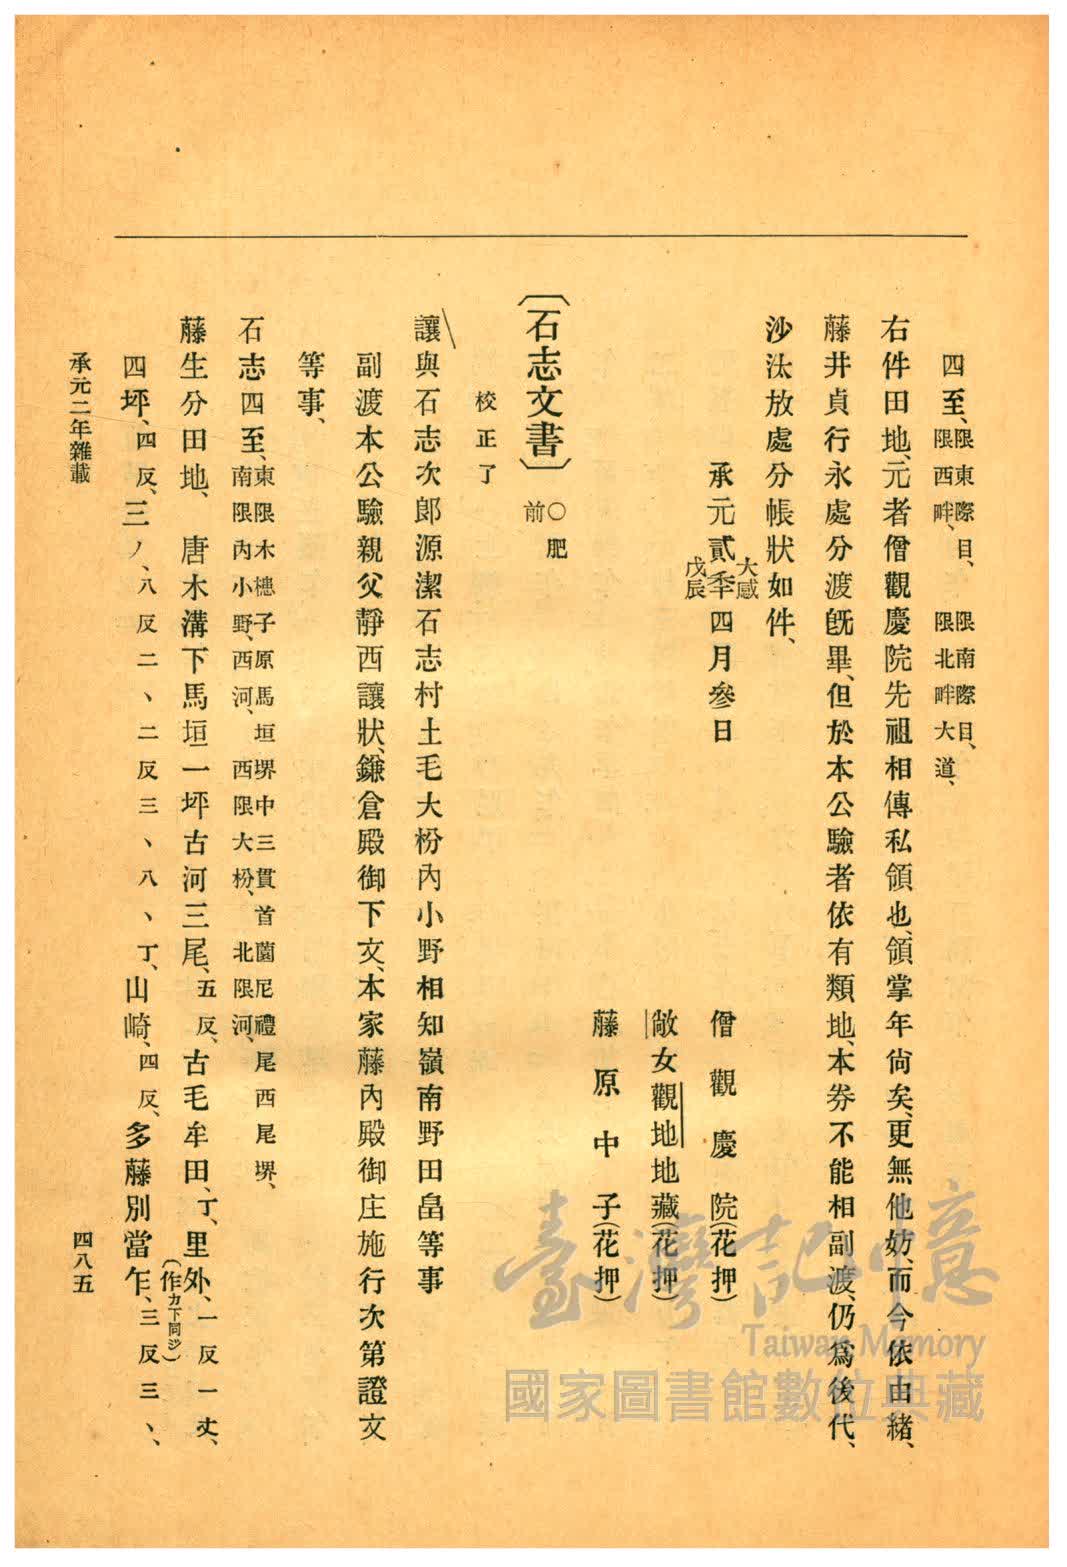 四至、限東際目、限南際目、
限西畔、限北畔大道、
右件田地、元者僧觀慶院先祖相傳私領也、領掌年尙矣、更無他妨、而今依由緒、
藤井貞行永處分渡旣畢、但於本公驗者依有類地、本券不能相副渡、仍爲後代、
沙汰放處分帳狀如件、
大歲
承元貳年四月參日
戊辰
僧觀慶院(花押)
敞女觀地地藏(花押)
藤原中子(花押)
〔石志文書〕○肥前
校正了
讓與石志次郎源潔石志村土毛大枌內小野相知嶺南野田畠等事
副渡本公驗親父靜西讓狀、鎌倉殿御下文、本家藤內殿御庄施行次第證文
等事、
石志四至、東限木槵子原馬垣堺中三貫首薗尼禮尾西尾堺、
南限內小野、西河、西限大枌、北限河、
藤生分田地、唐木溝下馬垣一坪古河三尾、五反、古毛牟田、丁、里外、一反一丈、
四坪、四反、三ノ、八反二、二反三、八、丁、山崎、四反、多藤別當乍、三反三、、
(作カ下同ジ)
承元二年雜載
四八五
臺灣記憶
Taiwan Memory
國家圖書館數位典藏